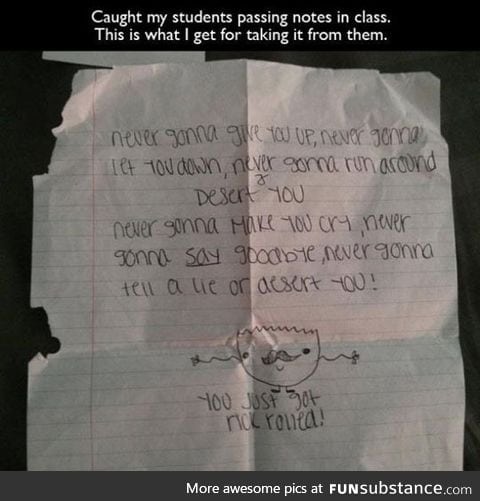 Caught my students passing notes in class.
This is what I get for taking it from them.
never gonna give you up, never gonna
let you down, never gonna run around
& Desert you
never gonna make you cry, never
gonna say goodbye, never gonna
tell a lie or desert you!
you just got
rick rolled!
More awesome pics at FUNsubstance.com